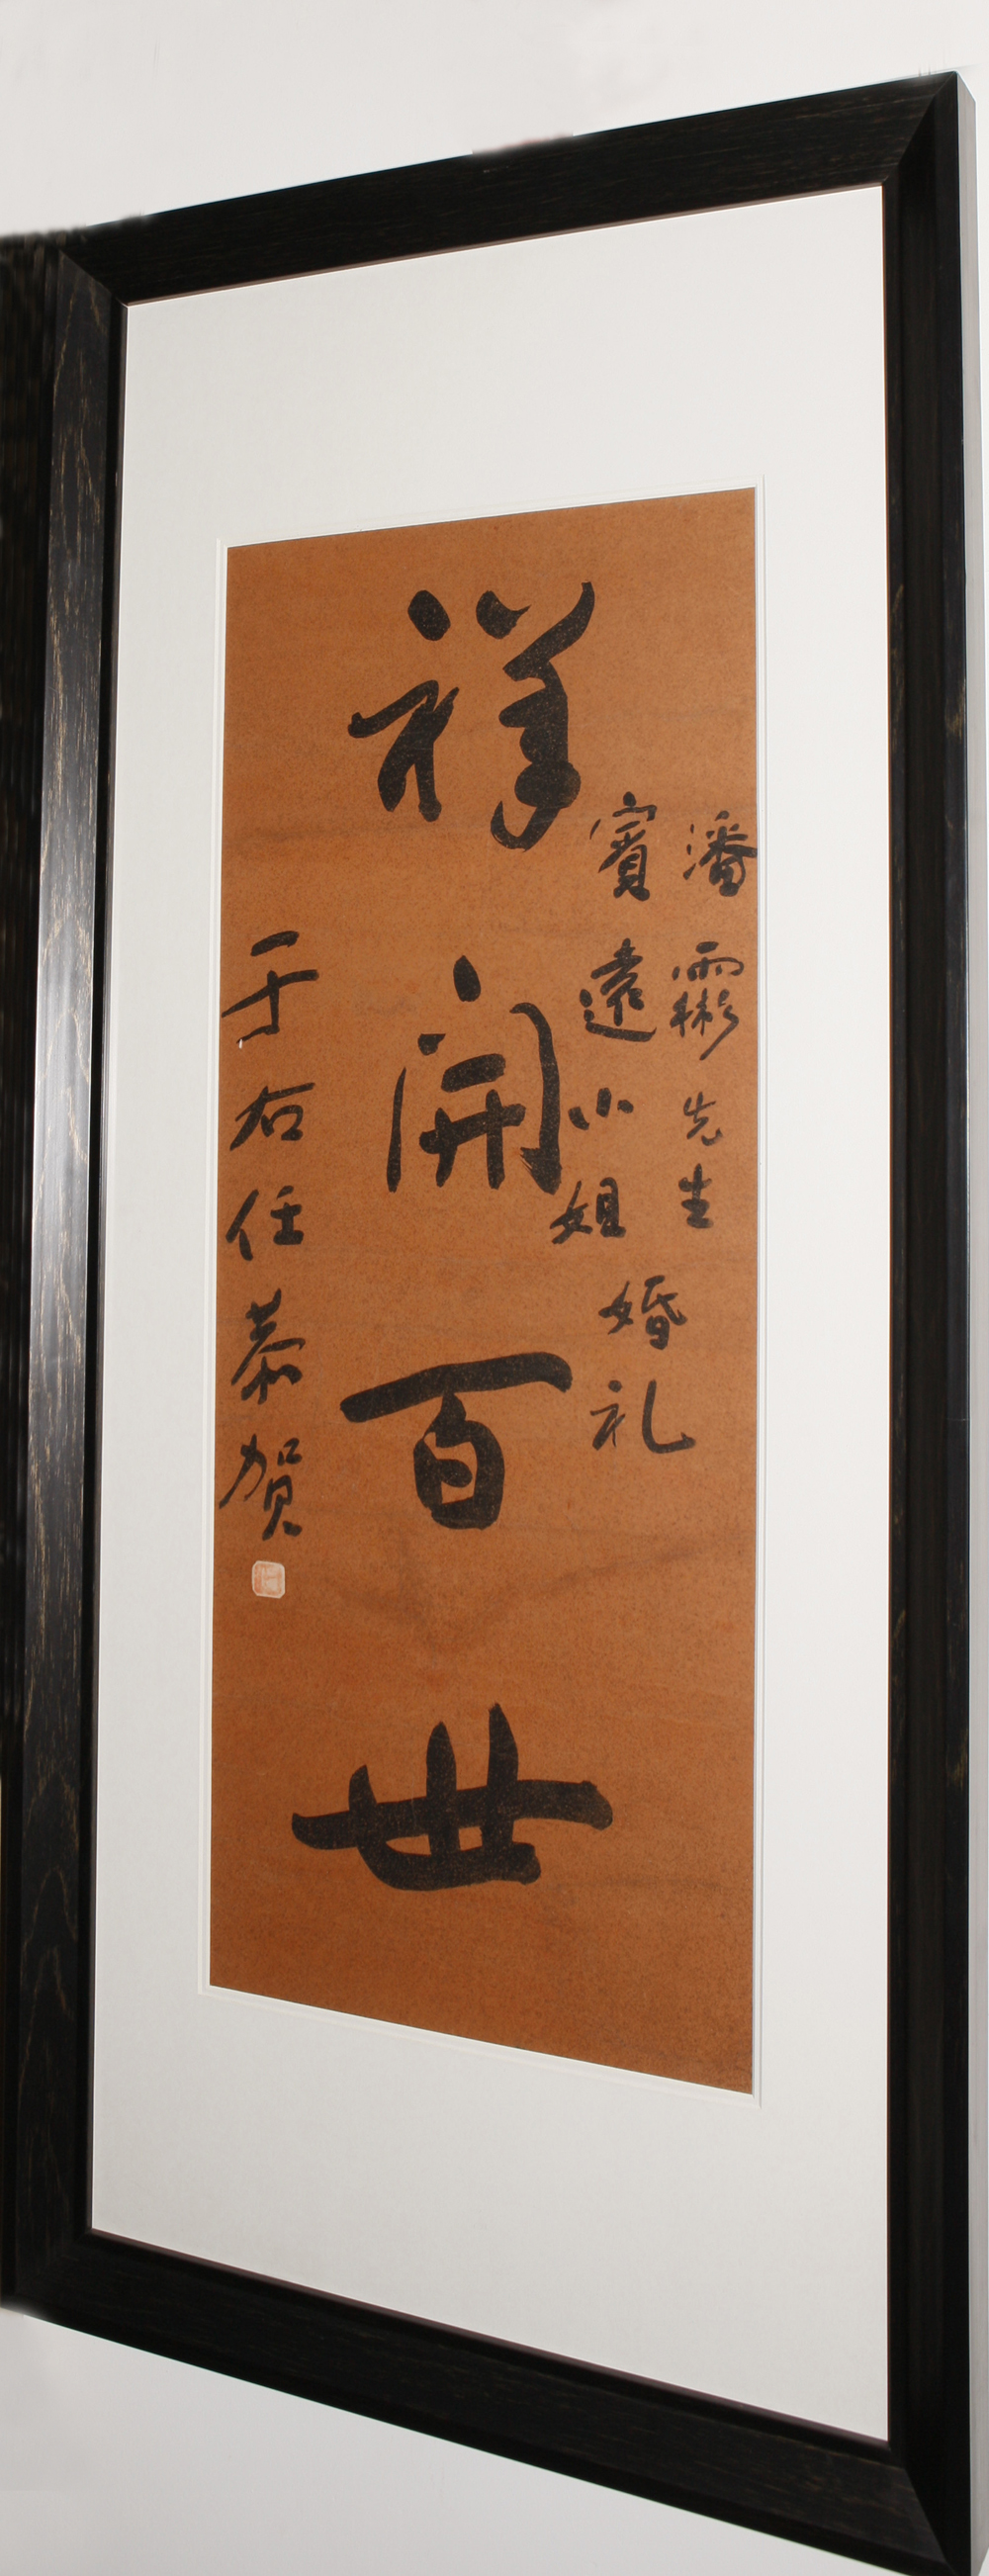 潘霦先生
賓遠小姐
婚礼
祥開百世
于右任恭賀